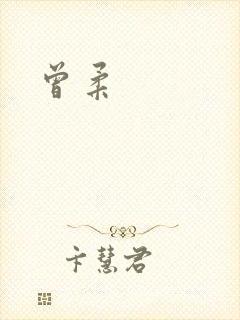 曾柔
卞慧君